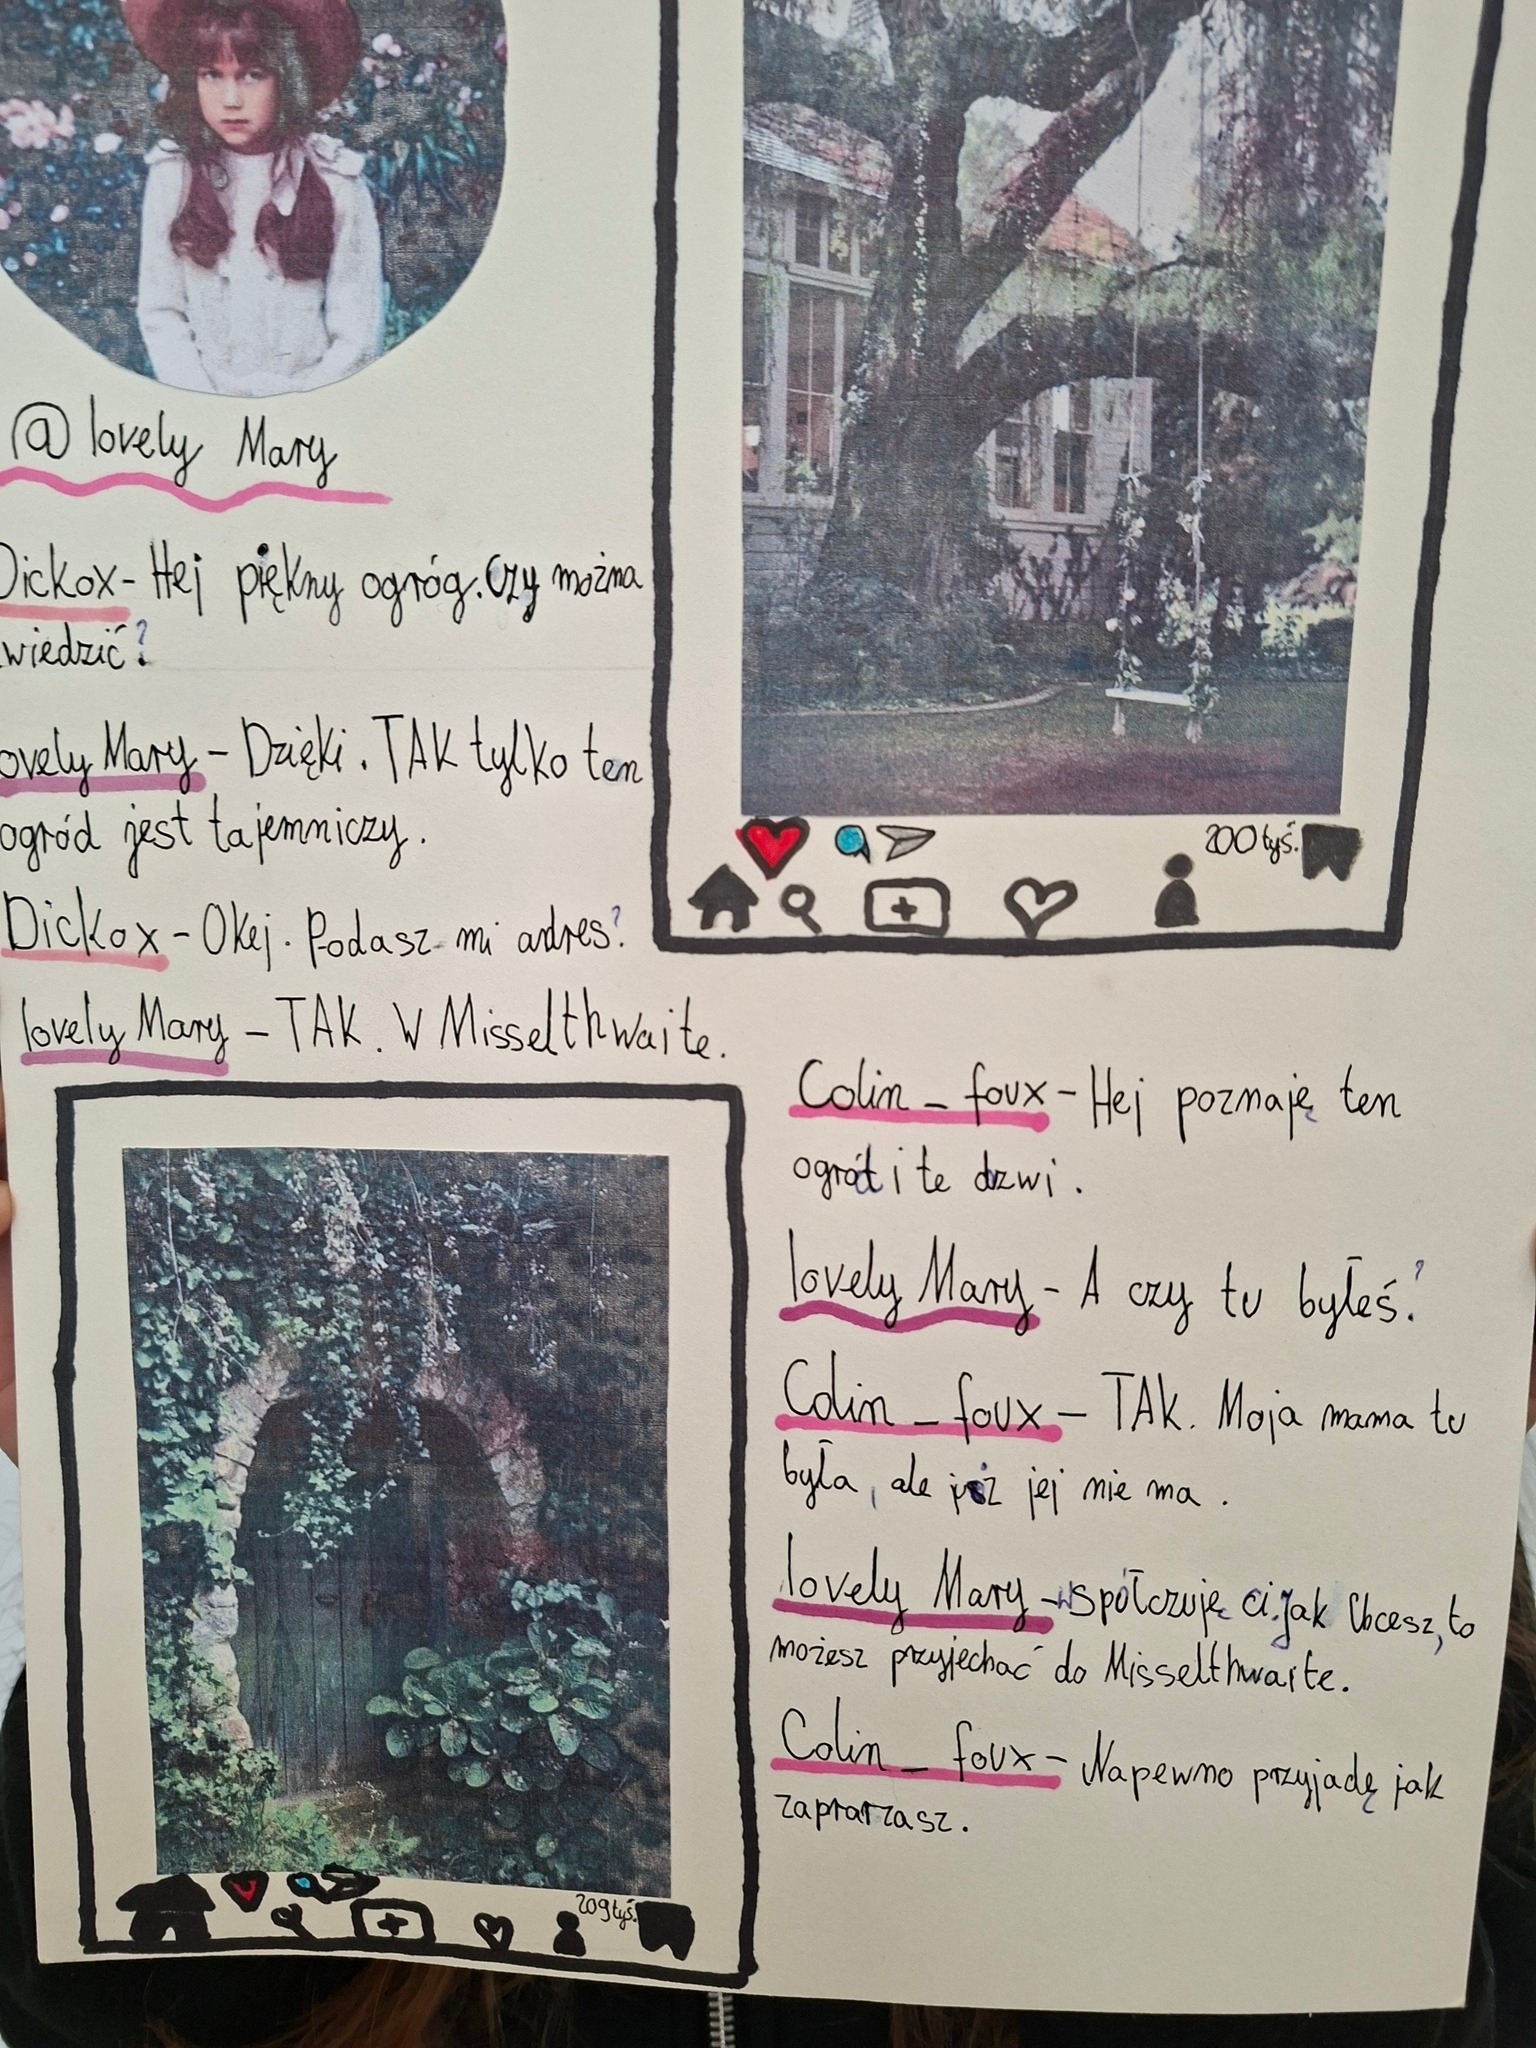 @lovely Mary
Dickox - Hej piękny ogróg. Czy można
zwiedzić?
lovely Mary - Dzięki. TAK tylko ten
ogród jest tajemniczy.
Dickox - Okej. Podasz mi adres?
lovely Mary - TAK. W Misselthwaite.
200 tyś.
Colin_foux - Hej poznaję ten
ogród i te dzwi.
lovely Mary - A czy tu byłeś?
Colin_foux - TAK. Moja mama tu
była, ale już jej nie ma.
lovely Mary - współczuję ci. Jak Chcesz, to
możesz przyjechać do Misselthwaite.
Colin_foux - Napewno przyjadę jak
zaprarzasz.
209 tyś.